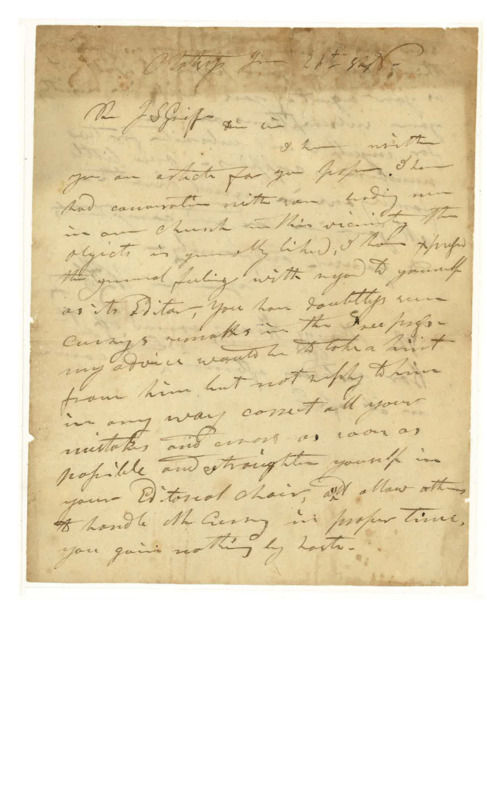 Rev J S Griffin
Dear Sir
I have written
you an article for your paper. I have
had conversation with some leading men
in our Church in this vicinity the
objects is generally liked, I have expressed
the general feeling with regard to yourself
as its Editor, You have doubtless seen
Currys remarks in the Free press
my advice would be to take a hint
from him but not reply to him
in any way correct all your
mistakes and errors as soon as
possible and straighten yourself in
your Editorial chair, and allow others
to handle Mr Curry in proper time,
you gain nothing by haste.